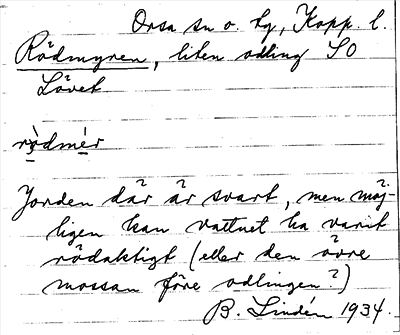 Orsa sn o. tg, Kopp. l.
Rödmyren, liten odling SO
Lövet
rò̱dmé̱r
Jorden där är svart, men möj-
ligen kan vattnet ha varit
rödaktigt (eller den övre
mossan före odlingen?)
B. Lindén 1934.